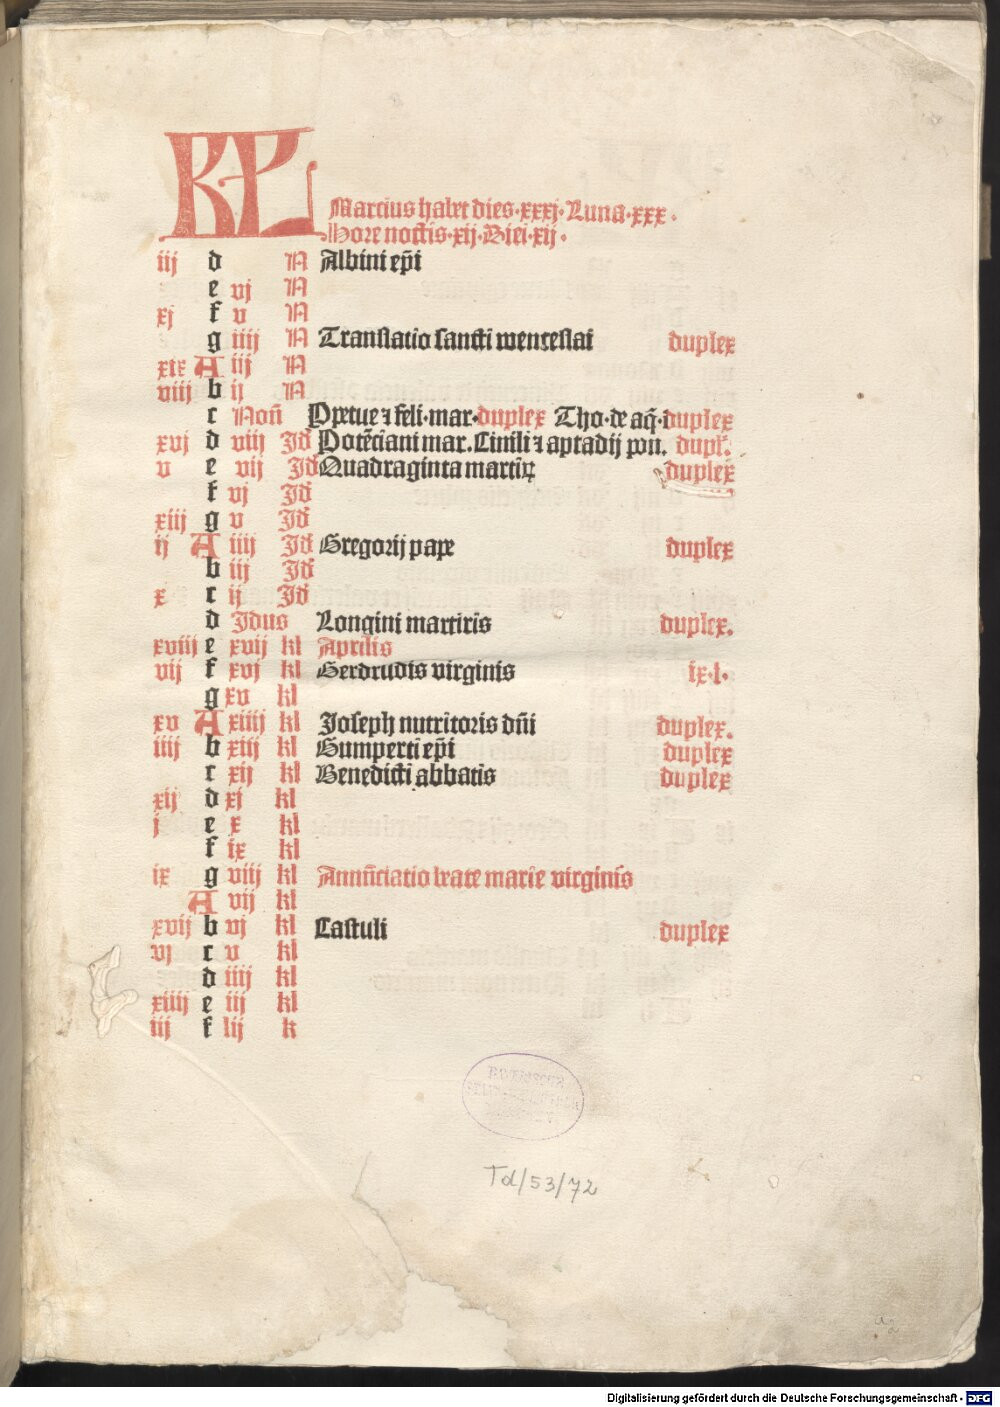 KL
Marcius habet dies·xxxj·Luna·xxx·
Hore noctis·xij·Diei·xij·
iij d N Albini ep̄i
e vj N
xj f v N
g iiij N Translatio sancti wenceslai duplex
xix A iij N
viij b ij N
c Non̄ Ppetue ⁊ feli·mar·duplex Tho·de aq̄·duplex
xvj d viij Id Potēciani mar. Cirilli ⁊ aptadij pon. dupl'.
v e vij Id Quadraginta martiꝝ duplex
f vj Id
xiij g v Id
ij A iiij Id Gregorij pape duplex
b iij Id
x c ij Id
d Idus Longini martiris duplex.
xviij e xvij kl Aprilis
vij f xvj kl Gerdrudis virginis ix·l·
g xv kl
xv A xiiij kl Joseph nutritoris dn̄i duplex.
iiij b xiij kl Gumperti ep̄i duplex
c xij kl Benedicti abbatis duplex
xij d xj kl
j e x kl
f ix kl
ix g viij kl Annūciatio beate marie virginis
A vij kl
xvij b vj kl Castuli duplex
vj c v kl
d iiij kl
xiiij e iij kl
iij f lij k
BAYERISCHE
STAATSBIBLIOTHEK
Td/53/72
Digitalisierung gefördert durch die Deutsche Forschungsgemeinschaft - DFG